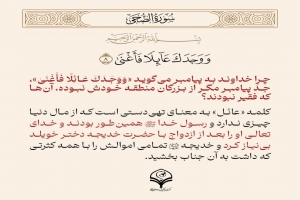 سُورَةُ الضُّحَىٰ
بِسْمِ اللَّهِ الرَّحْمَٰنِ الرَّحِيمِ
وَوَجَدَكَ عَآئِلًا فَأَغْنَىٰ ۸
چرا خداوند به پیامبر می‌گوید «وَوَجَدَكَ عَائلًا فَأَغْنَىٰ»،
جدّ پیامبر مگر از بزرگان منطقه خودش نبوده، آن‌ها
که فقیر نبودند؟
کلمه «عائل» به معنای تهی‌دستی است که از مال دنیا
چیزی ندارد و رسول خدا ﷺ همین‌طور بودند و خدای
تعالی او را بعد از ازدواج با حضرت خدیجه دختر خویلد
بی‌نیاز کرد و خدیجه تمامی اموالش را با همه کثرتی
که داشت به آن جناب بخشید.